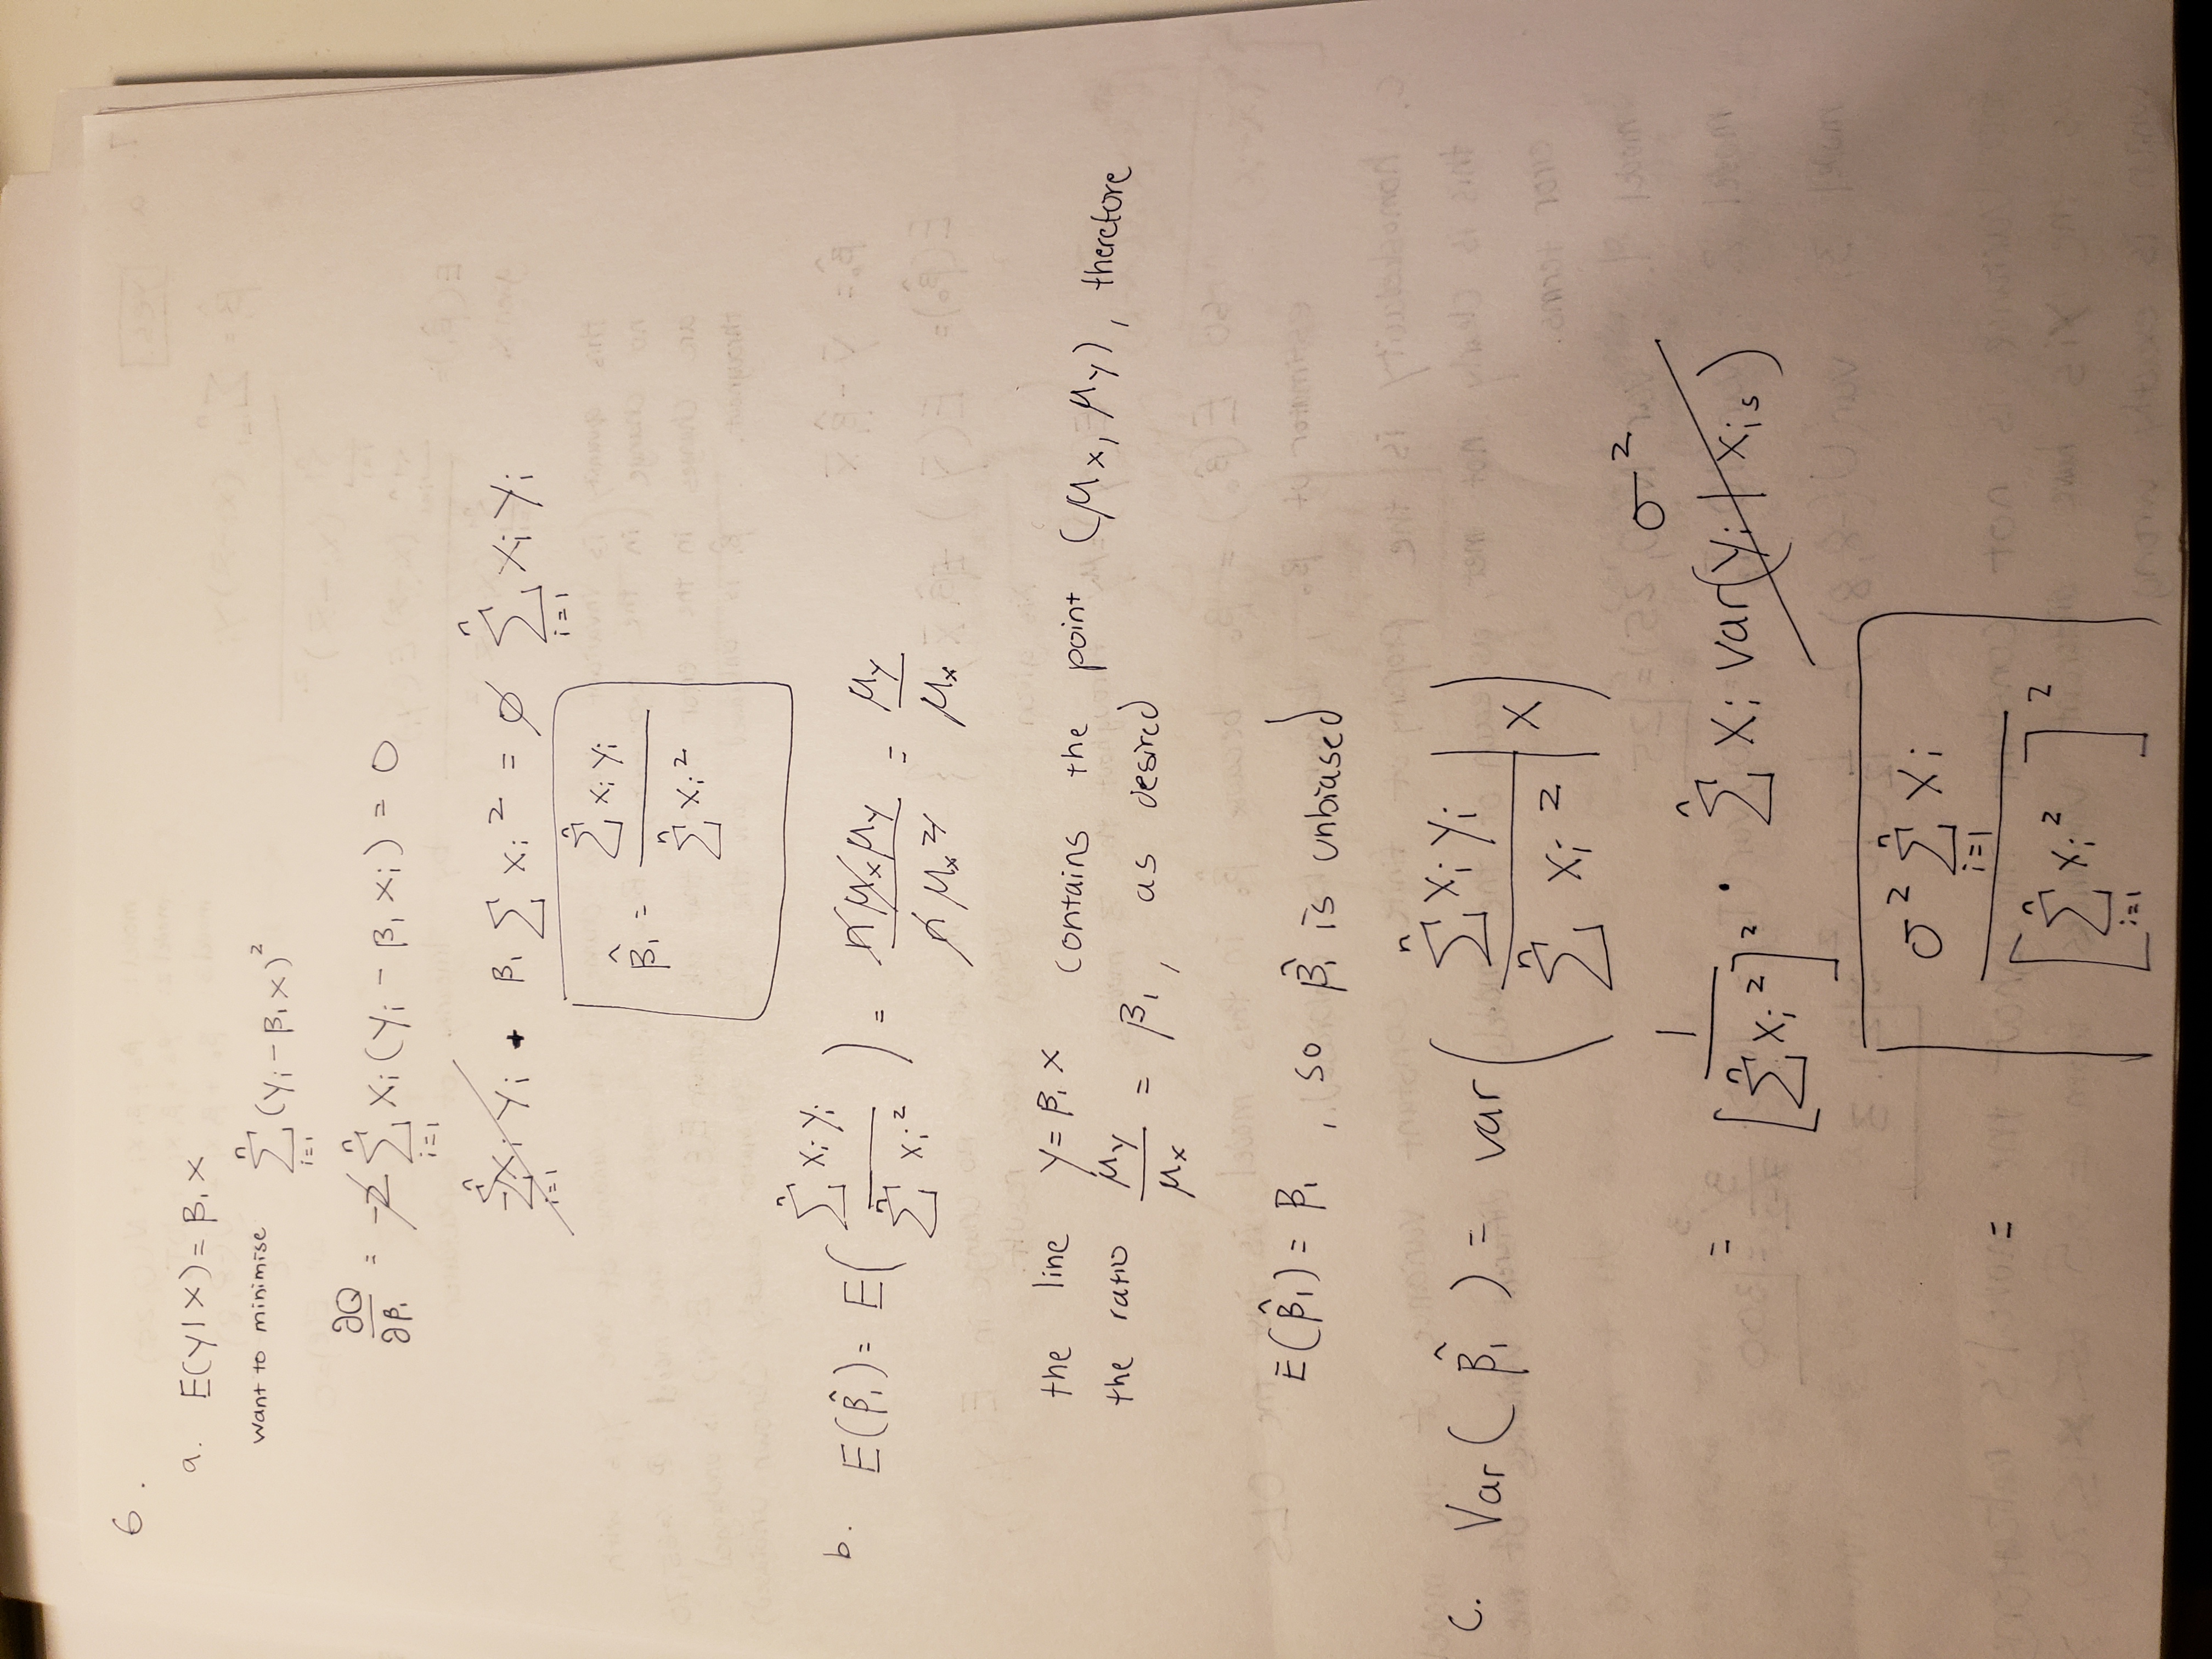 6.
a. E(Y|X) = β₁X
want to minimise Σ_{i=1}^{n} (Yi - β₁X)²
∂Q/∂β₁ = -2 Σ_{i=1}^{n} Xi (Yi - β₁Xi) = 0
-Σ_{i=1}^{n} Xi Yi + β₁ Σ Xi² = 0 Σ_{i=1}^{n} Xi Yi
β̂₁ = Σ^{n} Xi Yi / Σ^{n} Xi²
b. E(β̂₁) = E( Σ^{n} Xi Yi / Σ^{n} Xi² ) = n μx μy / n μx² = μy / μx
the line Y = β₁X contains the point (μx, μy), therefore
the ratio μy / μx = β₁, as desired
E(β̂₁) = β₁, so β̂₁ is unbiased
c. Var(β̂₁) = var( Σ^{n} Xi Yi / Σ^{n} Xi² | X )
σ²
= 1 / [Σ^{n} Xi²]² · Σ^{n} Xi var(Yi | Xis)
= σ² Σ_{i=1}^{n} Xi / [Σ_{i=1}^{n} Xi²]²